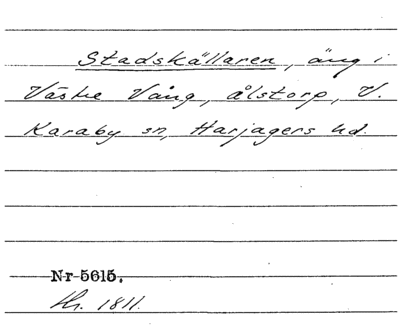 Stadskällaren, äng i
Västre Vång, Ålstorp, V.
Karaby sn, Harjagers hd.
Nr 5615.
Hr. 1811.